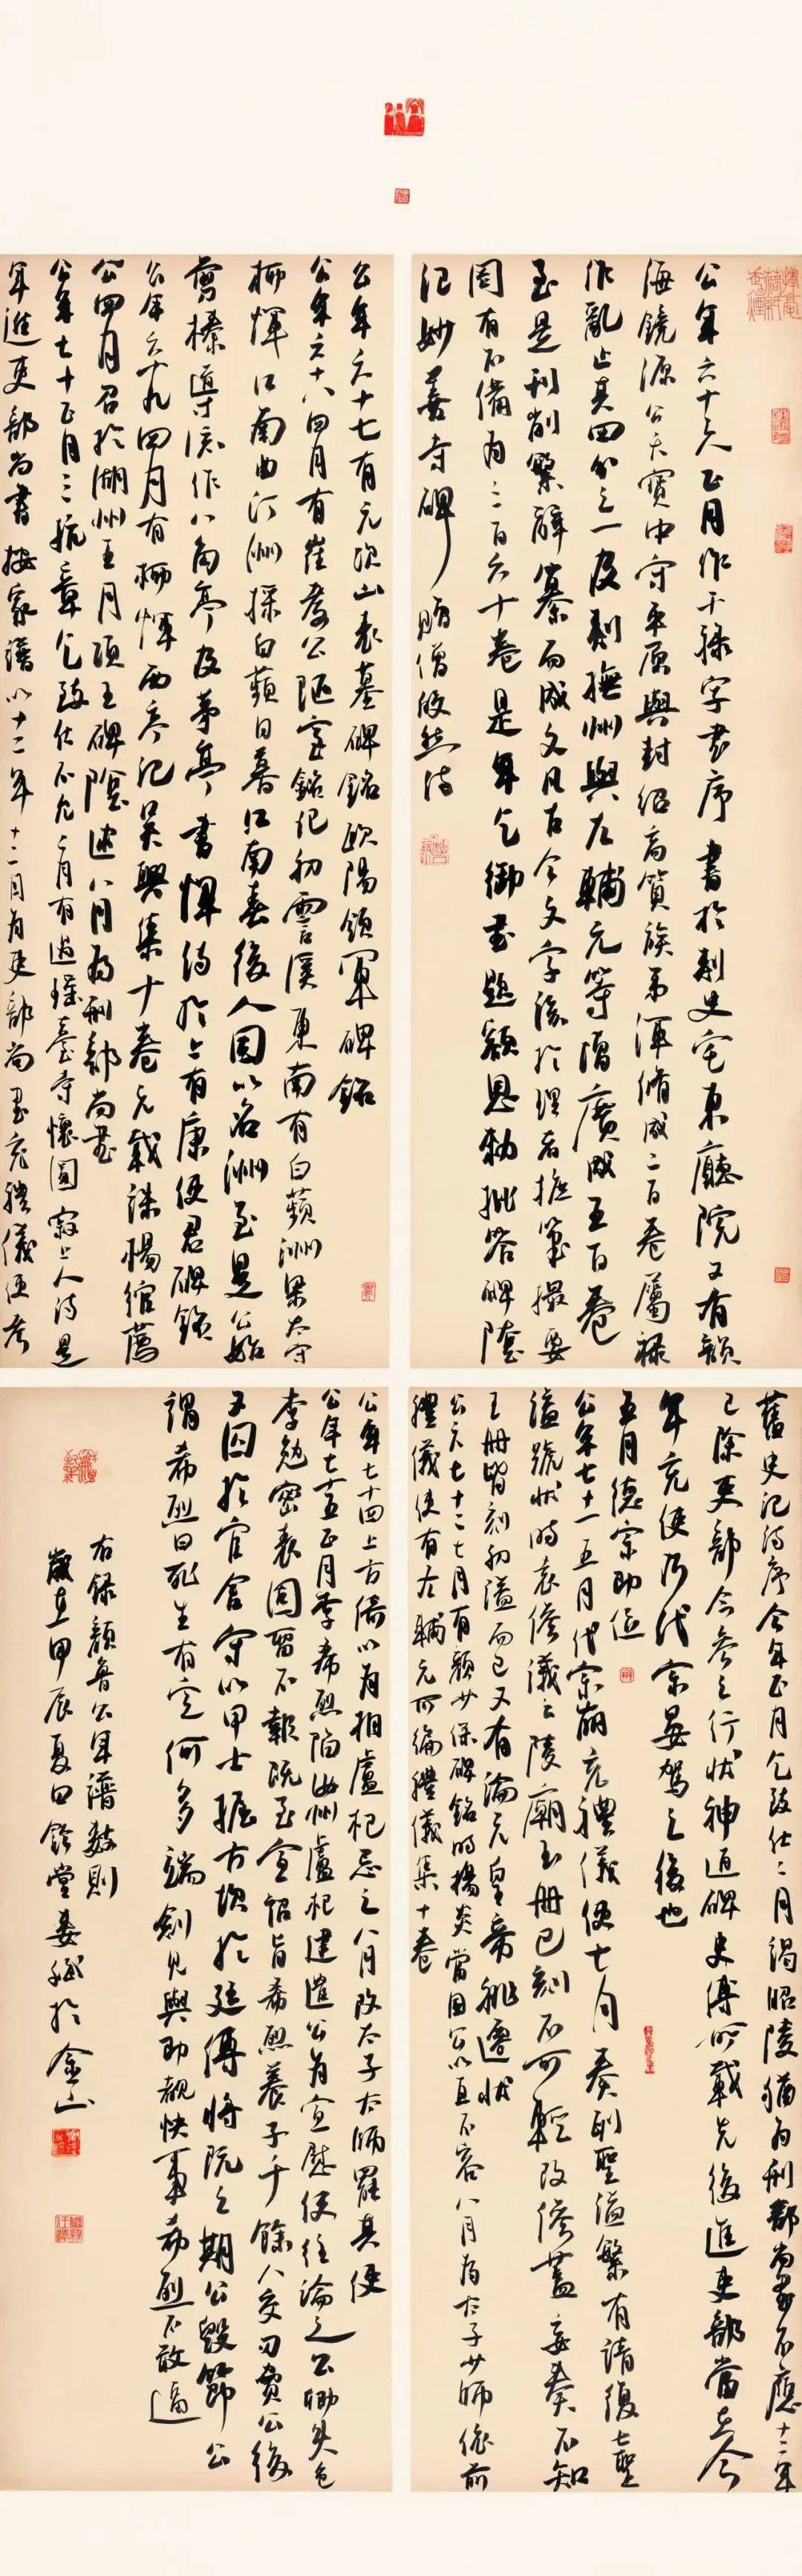 公年六十六正月作干祿字書序書於刺史宅東廳院又有韻
海鏡源公天寶中守平原與封紹高篔族弟渾脩成二百卷屬祿
作亂止具四分之一及刺撫州與左輔元等增廣成五百卷
至是刊削繁辭纂而成文凡古今文字該於理者摭筆撮要
罔有不備為三百六十卷是年乞御書題額恩勅批答碑陰
記妙喜寺碑贈僧皎然詩
公年六十七有元次山表墓碑銘歐陽領軍碑銘
公年六十八四月有崔孝公陋室銘記初霅溪東南有白蘋洲梁太守
柳惲江南曲汀洲採白蘋日暮江南春後人因以名洲至是公始
剪榛導流作八角亭及茅亭書惲詩於上有康使君碑銘
公年六十九四月有柳惲西亭記吳興集十卷元載誅楊綰薦
公四月召於湖州五月項王碑陰述八月為刑部尚書
公年七十正月三抗章乞致仕不允二月有遊瑤臺寺懷圓寂上人詩是
年進吏部尚書按家譜以十二年十二月為吏部尚書充禮儀使考
舊史記詩序今年正月乞致仕二月謁昭陵猶為刑部尚書不應十二年
已除吏部今參之行狀神道碑史傳所載先後進吏部當在今
年充使乃代宗晏駕之後也
五月德宗即位
公年七十一五月代宗崩充禮儀使七月奏列聖謚繁有請復七聖
謚號狀時袁傪議云陵廟玉冊已刻不可輕改傪蓋妄奏不知
玉冊皆刻初謚而已又有論元皇帝祧遷狀
公年七十二七月有顏少保碑銘時楊炎當國公以直不容八月為太子少師依前
禮儀使有左輔元所編禮儀集十卷
公年七十四上方倚以為相盧杞忌之八月改太子太師罷其使
公年七十五正月李希烈陷汝州盧杞建遣公為宣慰使往諭之公卿失色
李勉密表固留不報既至宣詔旨希烈養子千餘人交刃脅公後
又囚於官舍守以甲士掘方坎於廷傳將阬之期公毀節公
謂希烈曰死生有定何多端劍見與即覩快事希烈不敢逼
右錄顏魯公年譜數則
歲在甲辰夏日於